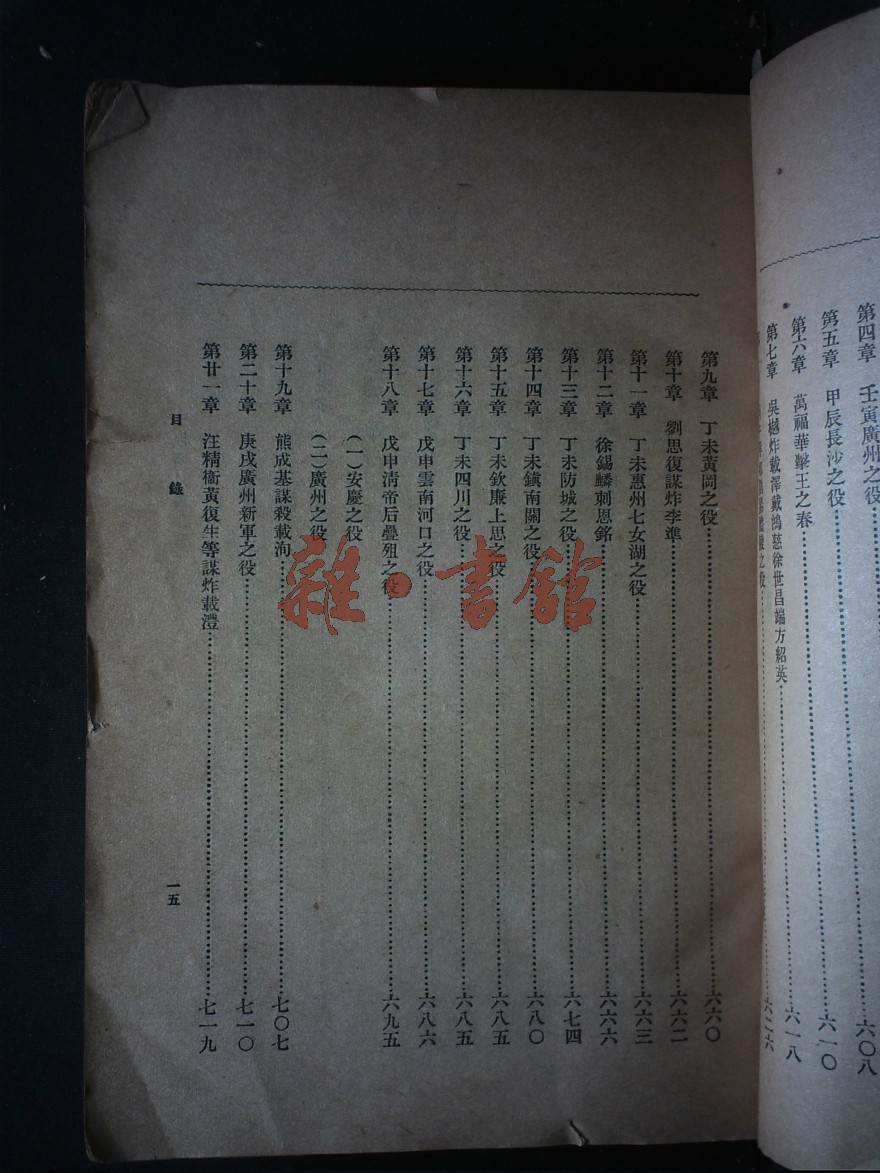 第四章 壬寅廣州之役……六〇八
第五章 甲辰長沙之役……六一〇
第六章 萬福華擊王之春……六一八
第七章 吳樾炸載澤戴鴻慈徐世昌端方紹英
之役……六二六
第九章 丁未黃岡之役……六六〇
第十章 劉思復謀炸李準……六六二
第十一章 丁未惠州七女湖之役……六六三
第十二章 徐錫麟刺恩銘……六六六
第十三章 丁未防城之役……六七四
第十四章 丁未鎮南關之役……六八〇
第十五章 丁未欽廉上思之役……六八五
第十六章 丁未四川之役……六八五
第十七章 戊申雲南河口之役……六八六
第十八章 戊申清帝后疊殂之役……六九五
(一)安慶之役
(二)廣州之役
第十九章 熊成基謀殺載洵……七〇七
第二十章 庚戌廣州新軍之役……七一〇
第廿一章 汪精衞黃復生等謀炸載灃……七一九
目錄
一五
雜·書館